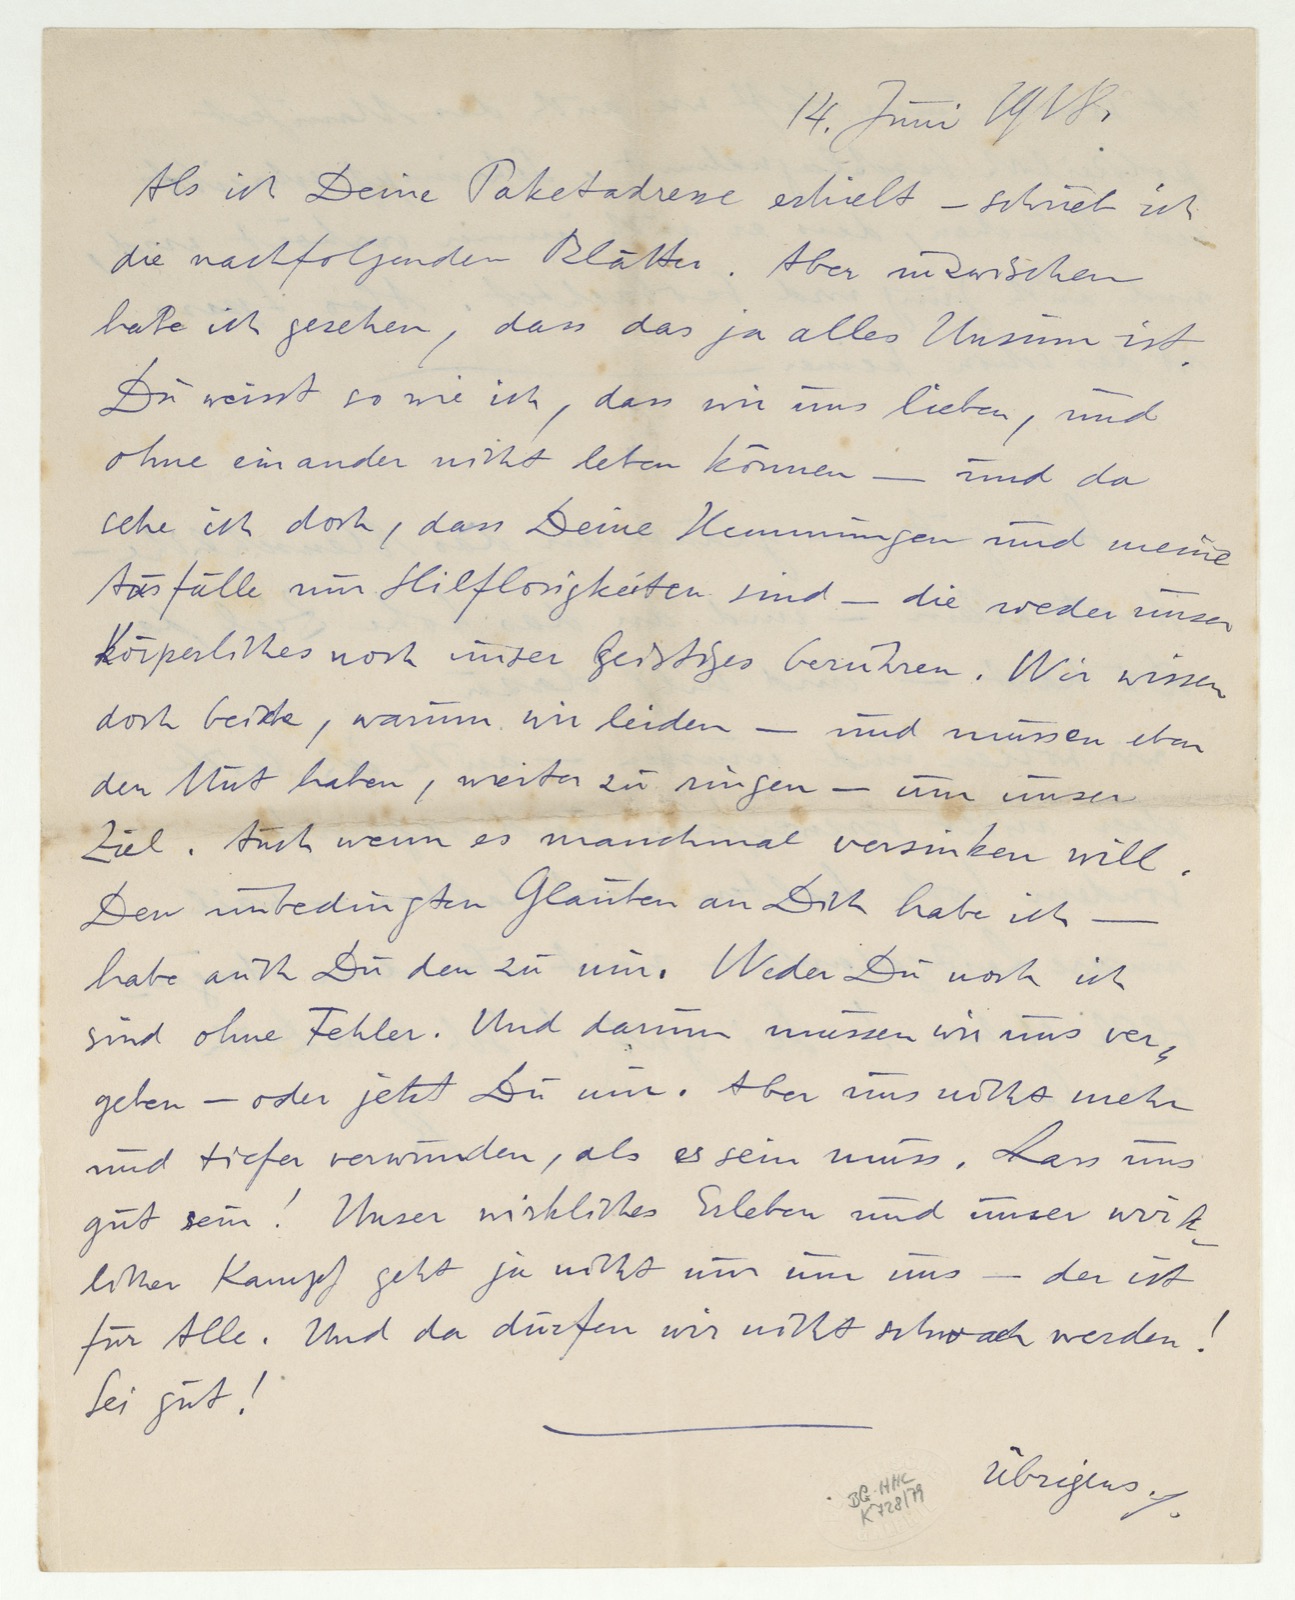 14. Juni 1918.
Als ich Deine Paketadresse erhielt – schrieb ich
die nachfolgenden Blätter. Aber inzwischen
habe ich gesehen, dass das ja alles Unsinn ist.
Du weisst so wie ich, dass wir uns lieben, und
ohne einander nicht leben können — und da
sehe ich doch, dass Deine Hemmungen und meine
Ausfälle nur Hilflosigkeiten sind – die weder unser
Körperliches noch unser Geistiges berühren. Wir wissen
doch beide, warum wir leiden — und müssen eben
den Mut haben, weiter zu ringen – um unser
Ziel. Auch wenn es manchmal versinken will.
Den unbedingten Glauben an Dich habe ich —
habe auch Du den zu mir. Weder Du noch ich
sind ohne Fehler. Und darum müssen wir uns ver„
geben – oder jetzt Du mir. Aber uns nicht mehr
und tiefer verwunden, als es sein muss. Lass uns
gut sein! Unser wirkliches Erleben und unser wirk-
licher Kampf geht ja nicht nur um uns — der ist
für Alle. Und da dürfen wir nicht schwach werden!
Sei gut!
Übrigens ./.
BG-HHC
K 728/79